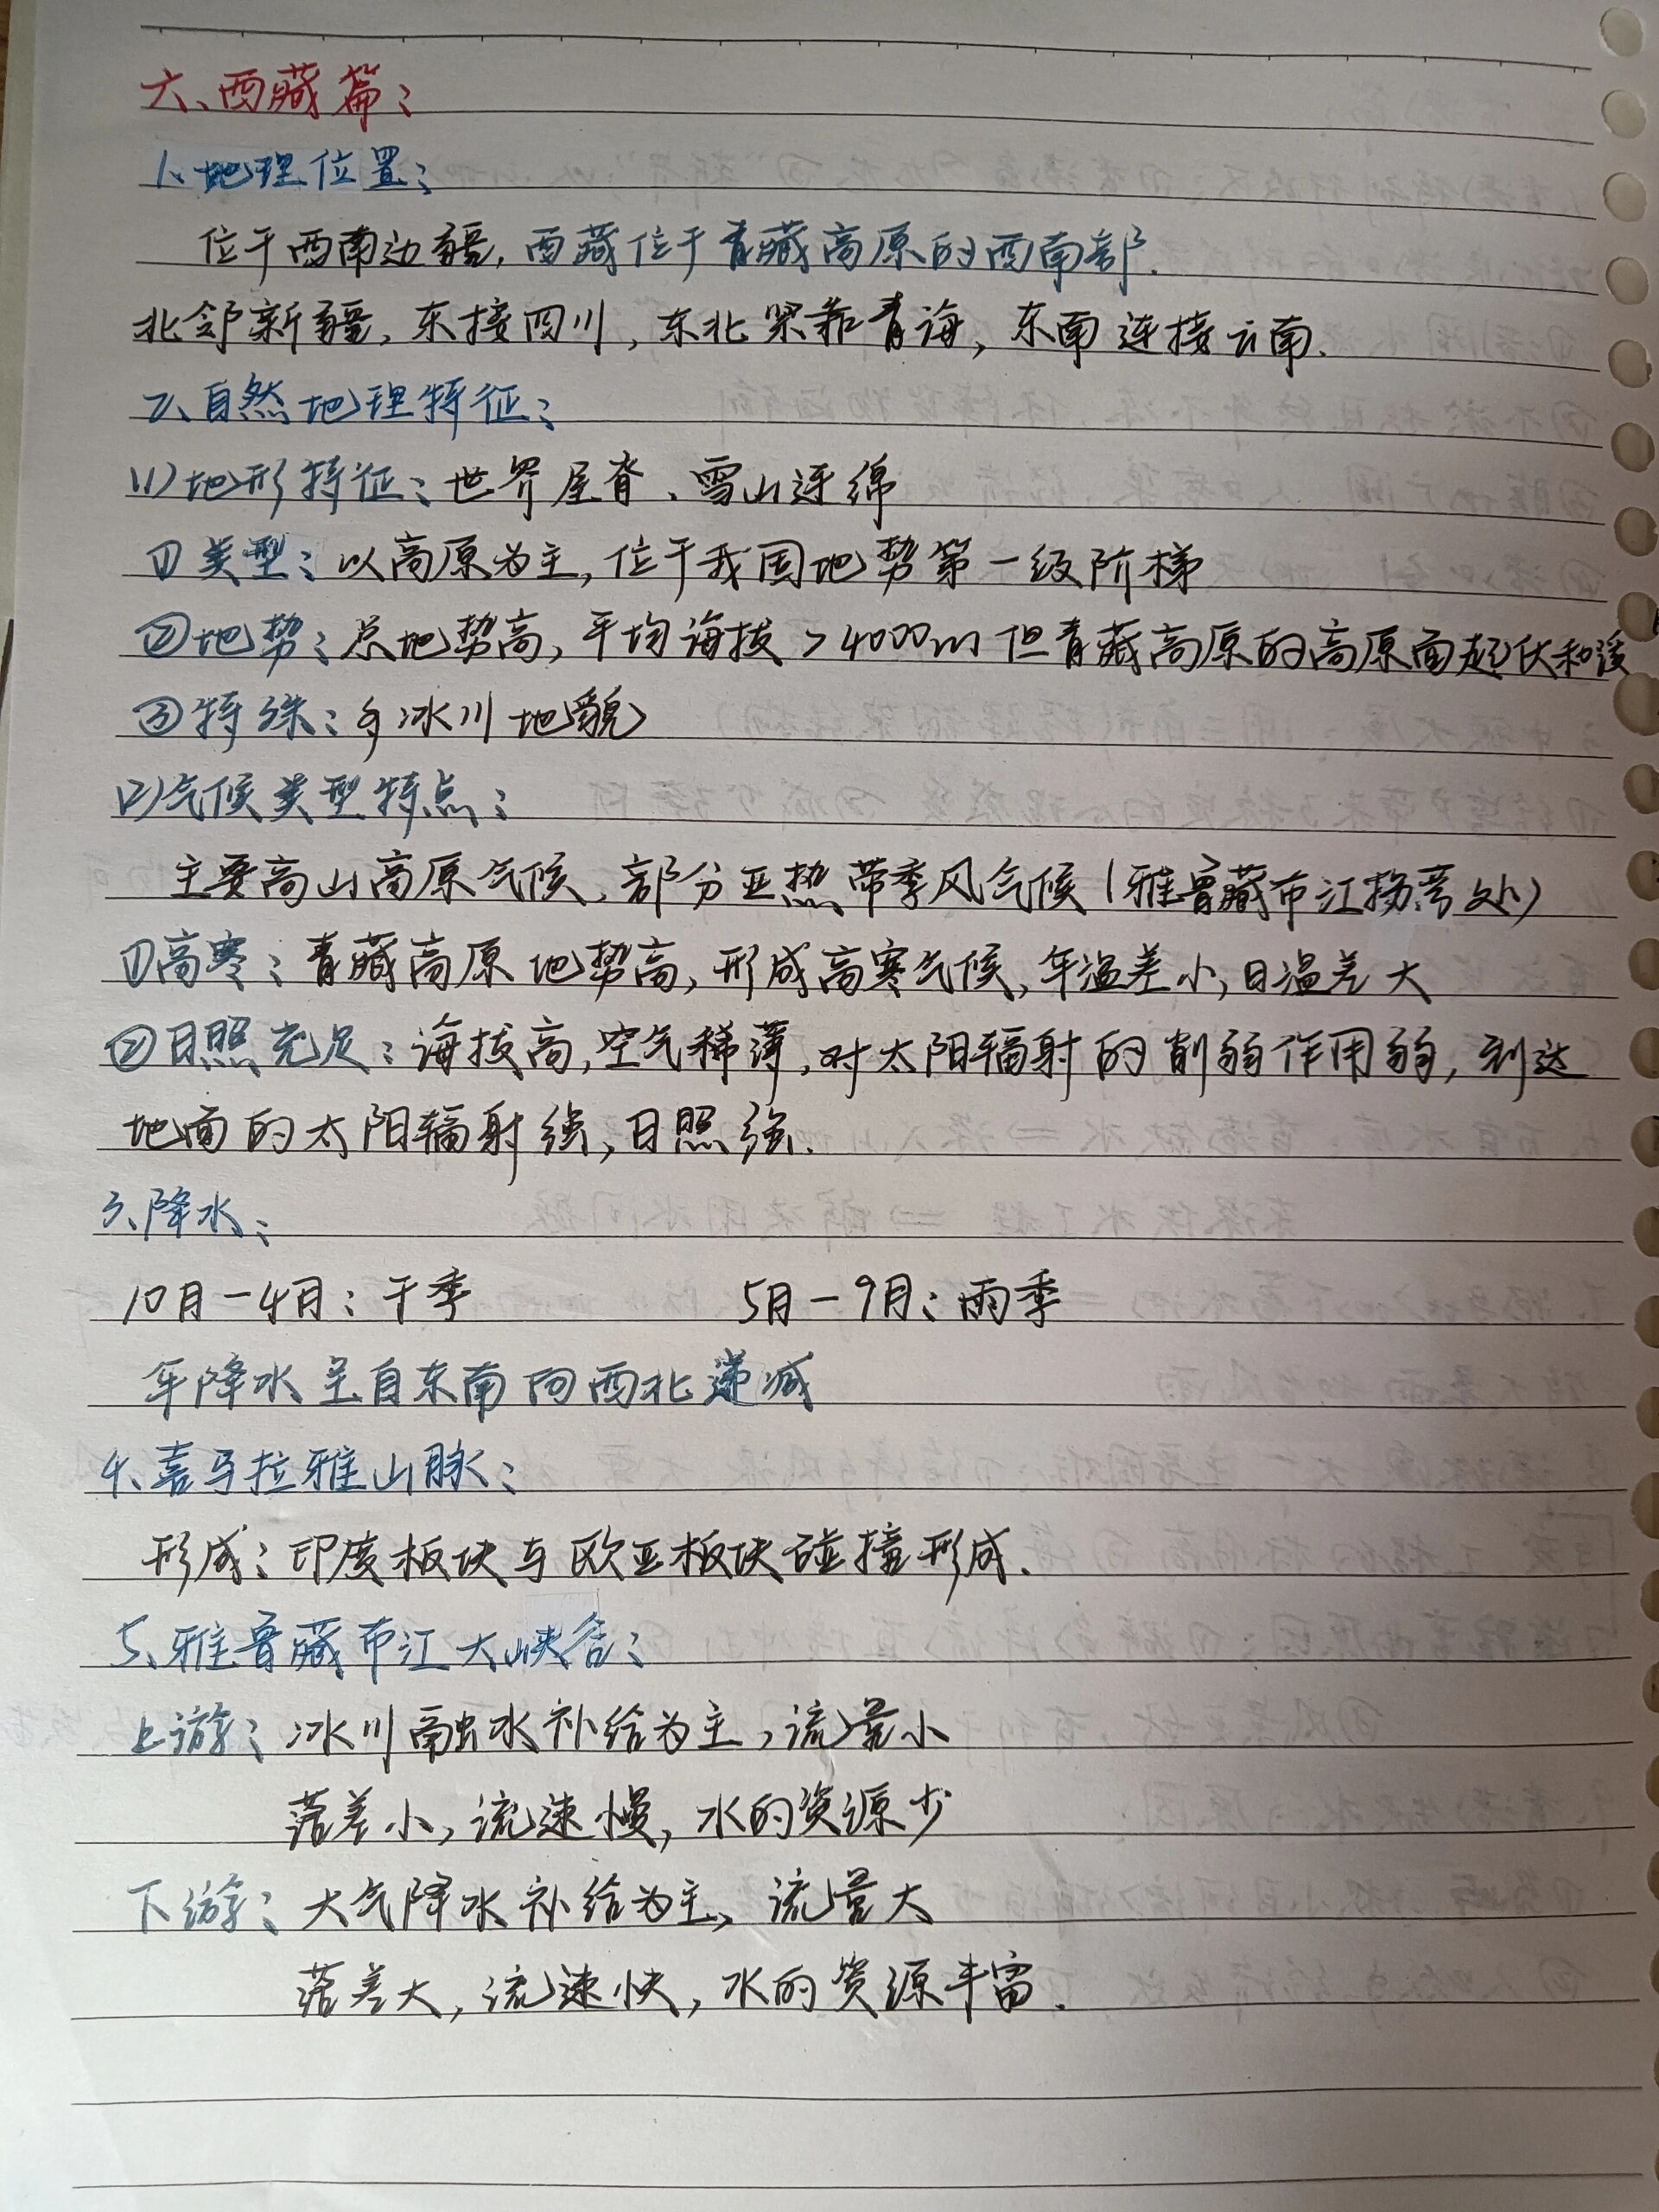 六、西藏篇：
1、地理位置：
位于西南边疆，西藏位于青藏高原的西南部．
北邻新疆，东接四川，东北紧靠青海，东南连接云南．
2、自然地理特征：
(1)地形特征：世界屋脊、雪山连绵
①类型：以高原为主，位于我国地势第一级阶梯
②地势：总地势高，平均海拔>4000m但青藏高原的高原面起伏和缓
③特殊：多冰川地貌
(2)气候类型特点：
主要高山高原气候、部分亚热带季风气候(雅鲁藏布江拐弯处)
①高寒：青藏高原地势高，形成高寒气候，年温差小，日温差大
②日照充足：海拔高，空气稀薄，对太阳辐射的削弱作用弱，到达
地面的太阳辐射强，日照强．
3、降水：
10月－4月：干季 5月－9月：雨季
年降水呈自东南向西北递减
4、喜马拉雅山脉：
形成：印度板块与欧亚板块碰撞形成．
5、雅鲁藏布江大峡谷：
上游：冰川融水补给为主，流量小
落差小，流速慢，水的资源少
下游：大气降水补给为主，流量大
落差大，流速快，水的资源丰富．